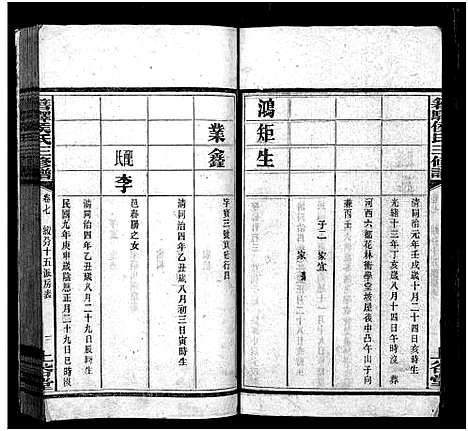 清同治元年壬戌歲十二月二十四日亥時生
光緒十三年丁亥歲八月十四日午時沒葬
河西六都花林衝學堂坡屋後中凸午山子向
兼丙壬
子二
家宜
鴻矩生
業鑫
清同治四年乙丑歲八月初三日寅時生
配
李氏
邑春陽之女
清同治四年乙丑歲八月二十九日辰時生
民國九年庚申歲陰曆正月二十九日巳時後
氏三修譜
卷七
派房表